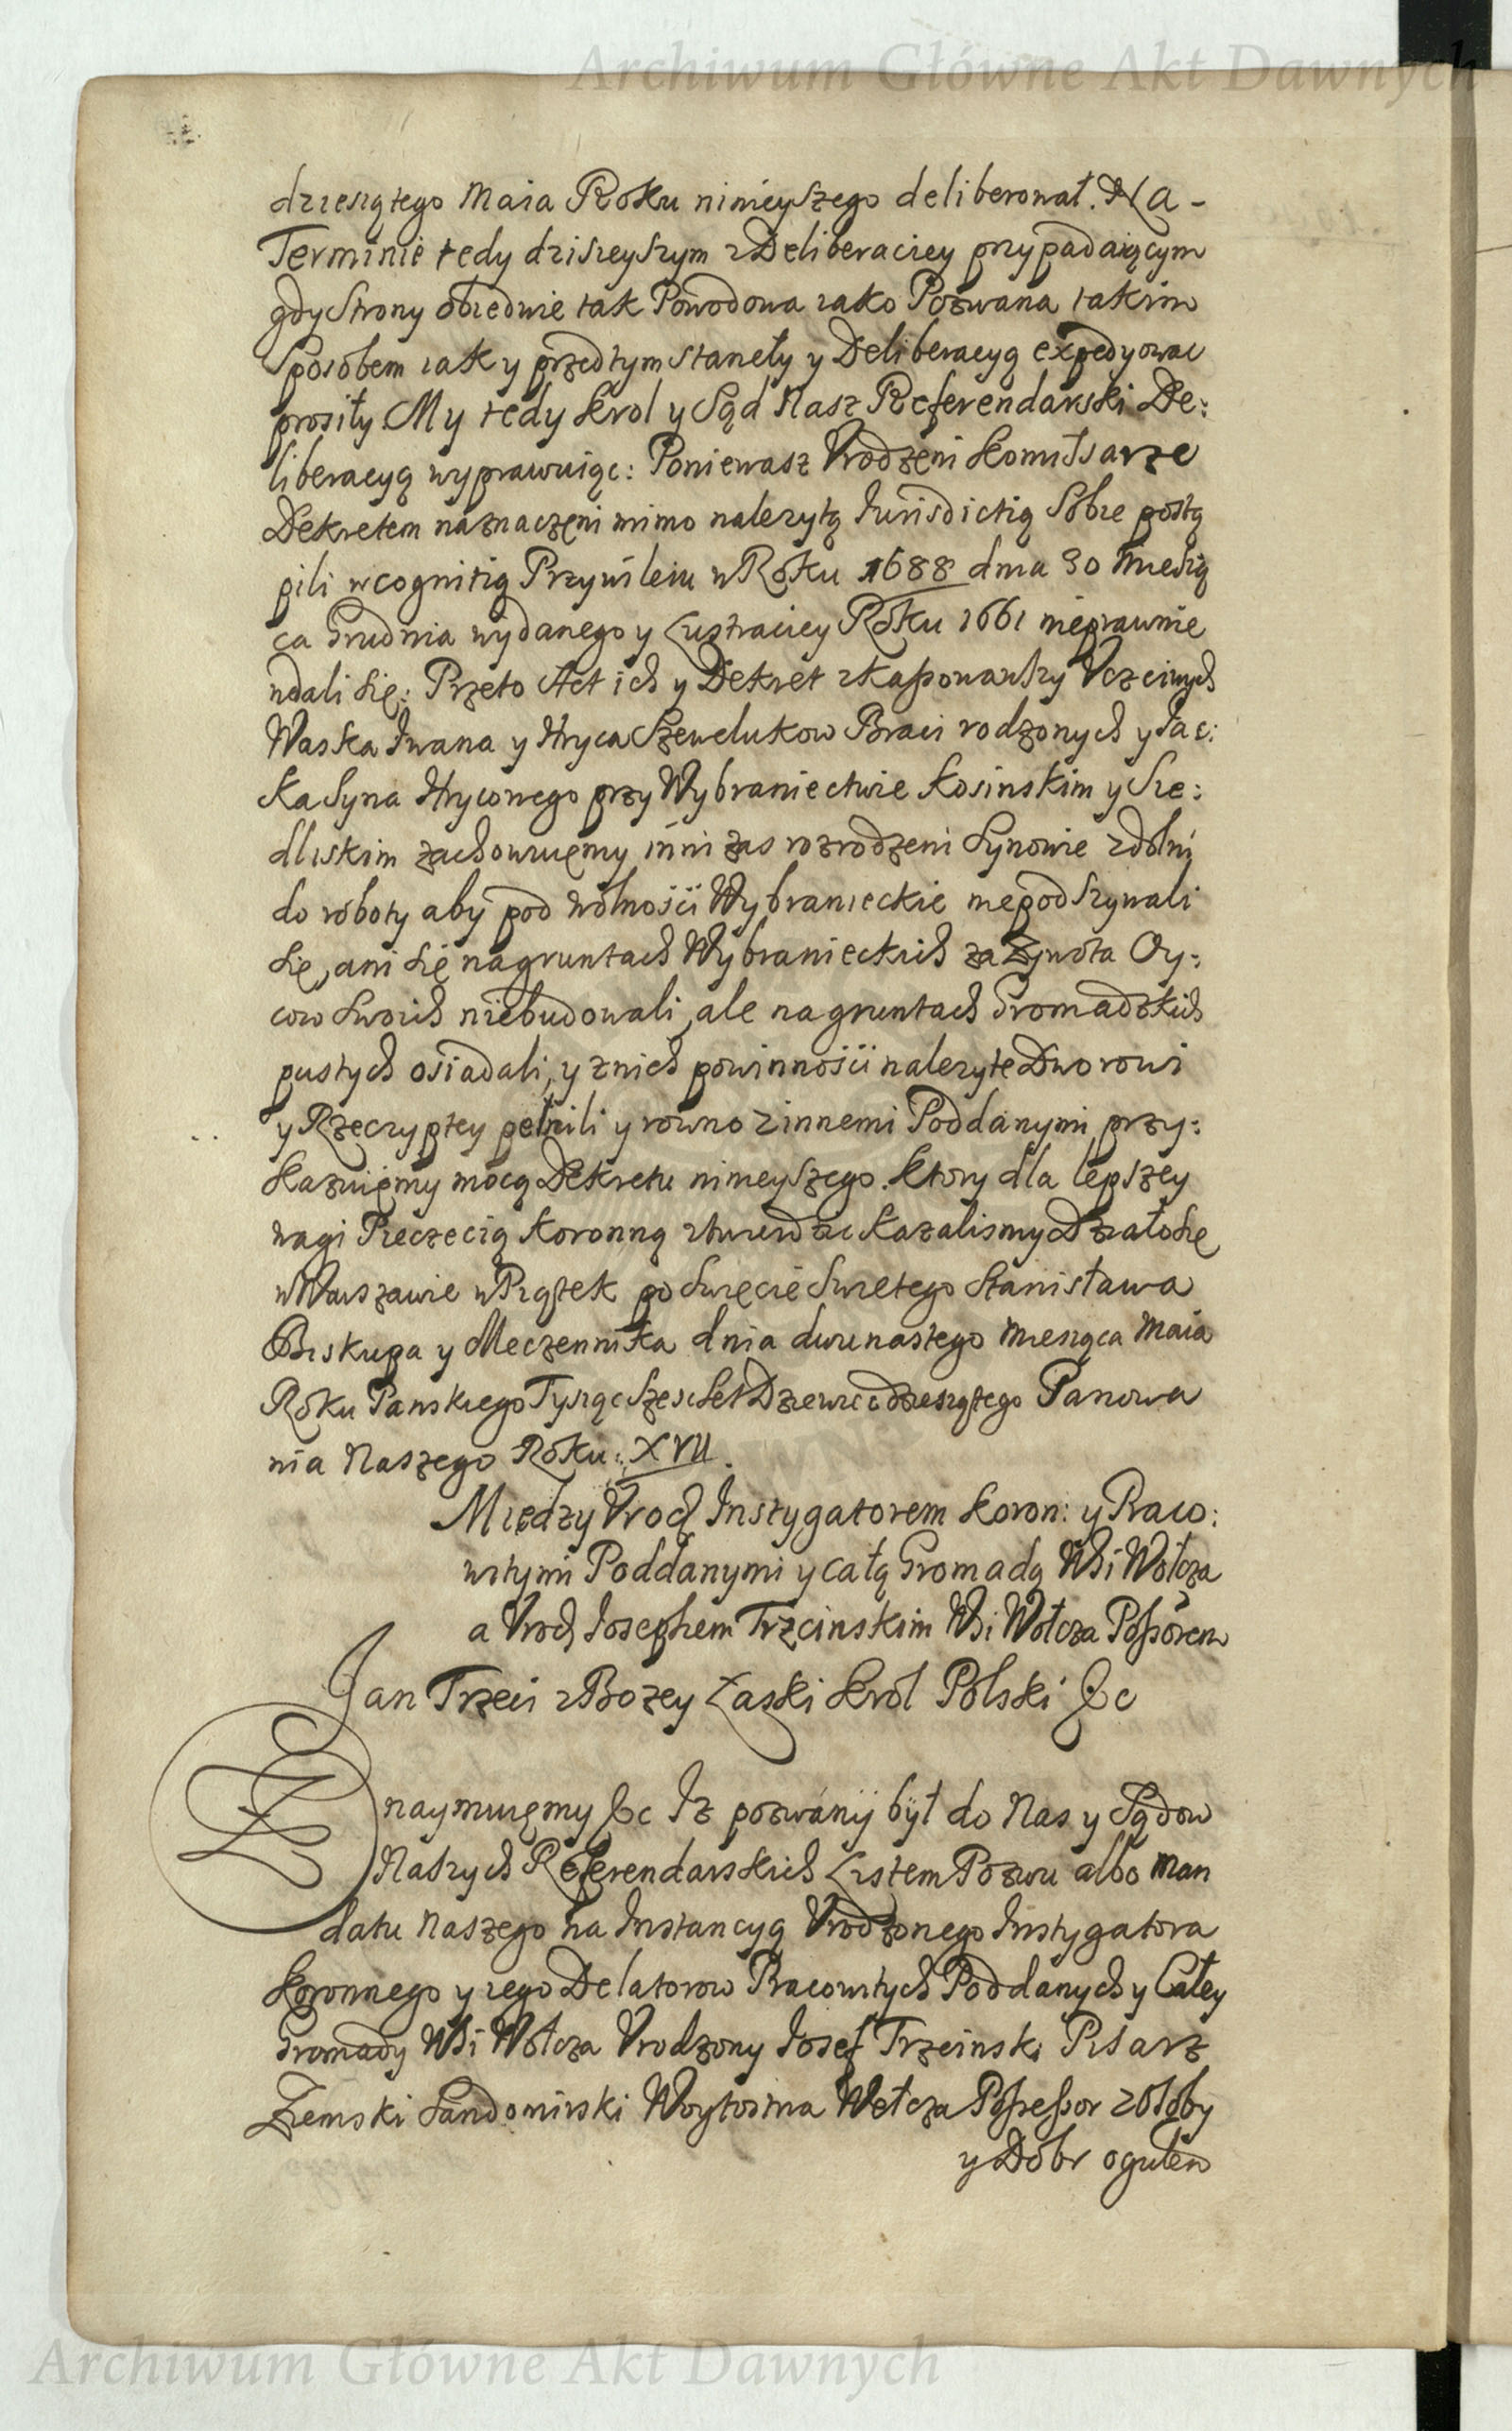 Archiwum Główne Akt Dawnych
dziesiątego Maia Roku ninieyszego deliberował. Na -
Terminie tedy dzisieyszym z Deliberaciey przypadaiącym
gdy Strony obiedwie tak Powodowa iako Pozwana takim
Sposobem iak y przedtym stanęły y Deliberacyą expedyowac
prosiły. My tedy Krol y Sąd Nasz Referendarski De:
liberacyą wyprawuiąc: Poniewasz Vrodzeni Komissarze
Dekretem naznaczeni mimo należytą Iurisdictią Sobie postą
pili w cognitią Przywileiu w Roku 1688 dnia 30 Miesią
ca Grudnia wydanego y Lustraciey Roku 1661 nieprawnie
wdali się: Przeto Act ich y Dekret zkassowawszy Vczciwych
Waska Iwana y Hryca Szewelukow Braci rodzonych y Iac:
ka Syna Hrycowego przy Wybraniectwie Kosinskim y Sie:
dliskim zachowuięmy inni zas rozrodzeni Synowie zdolni
do roboty aby pod wolności Wybranieckie niepodszywali
się, ani się na gruntach Wybranieckich za Zywota Oy:
cow Swoich niebudowali, ale na gruntach Gromadzkich
pustych osiadali, y z nich powinności należyte Dworowi
y Rzeczyptey pełnili y rowno z innemi Poddanymi przy:
kazuięmy mocą Dekretu ninieyszego. Ktory dla lepszey
wagi Pieczęcią Koronną ztwierdzic kazalismy Działosię
w Warszawie w Piątek po Swięcie Swietego Stanisława
Biskupa y Męczennika dnia dwunastego Miesiąca Maia
Roku Panskiego Tysiąc Szescset Dziewiędziesiątego Panowa
nia Naszego Roku: XVII.
Między Vrodz Instygatorem Koron: y Praco:
witymi Poddanymi y całą Gromadą Wsi Wołcza
a Vrodz Iosephem Trzcinskim Wsi Wołcza Possorem
Jan Trzeci z Bozey Łaski Krol Polski &c
Znaymuięmy &c Iz pozwany był do Nas y Sądow
Naszych Referendarskich Listem Pozwu albo Man
datu Naszego na Instancyą Vrodzonego Instygatora
Koronnego y iego Delatorow Pracowitych Poddanych y Całey
Gromady Wsi Wołcza Vrodzony Iosef Trzcinski Pisarz
Ziemski Sandomirski Woytostwa Wołcza Possessor z osoby
y Dobr ogułem
Archiwum Główne Akt Dawnych